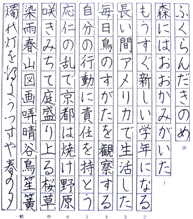 ふくらんだきのめ
森にはおおかみがいた
もうすぐ新しい学年になる
長い間アメリカで生活した
毎日鳥のすがたを観察する
自分の行動に責任を持とう
応仁の乱で京都は焼け野原
咲きみちて庭盛り上る桜草
染雨春山図画晴谷鳥笙
うつすや春の